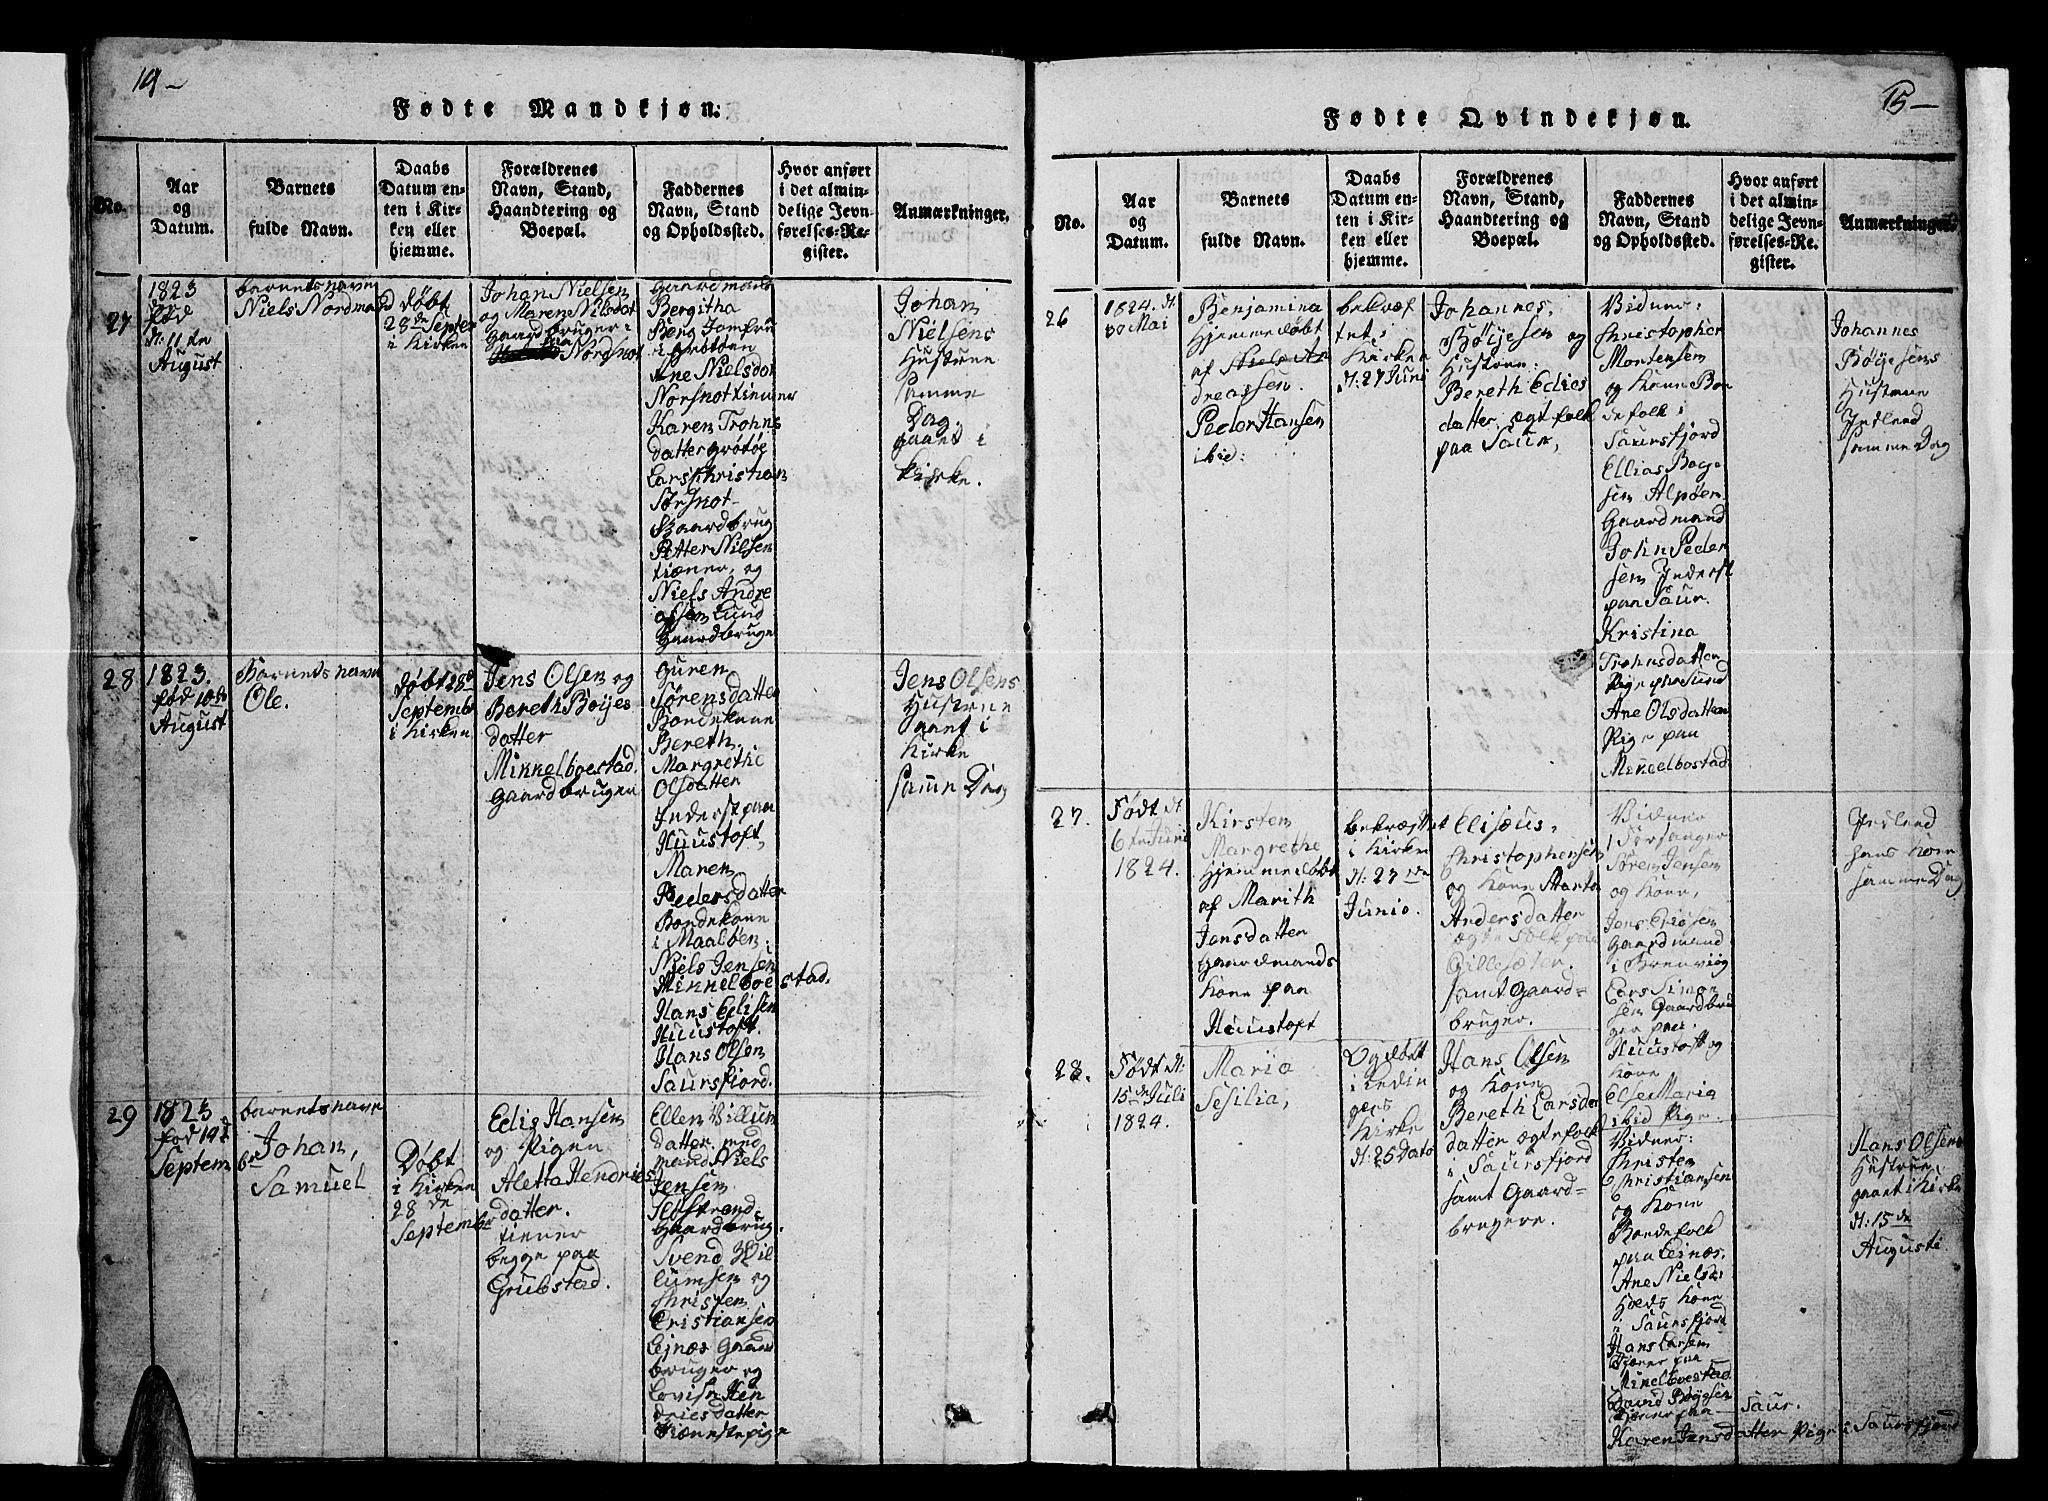 14 -
Fødte Mandkjøn.
No.
Aar
og
Datum.
Barnets
fulde Navn.
Daabs
Datum en-
ten i Kir-
ken eller
hjemme.
Forældrenes
Navn, Stand,
Haandtering og
Boepæl.
Faddernes
Navn, Stand
og Opholdssted.
Hvor anført
i det almin-
delige Jevn-
førelses-Re-
gister.
Anmærkninger.
27
1823
fød
d: 11 te
August
barnets navn
Niels Nordmand
døbt
28de Septer
i Kirken
Johan Nielsen
og Maren Nilsdot
gaardbruger i
Nordsnot
gaardmands
Bergitha
Berg Jomfru
i grøtøen
Ane Nielsdot
Norsnot tienner
Karen Trohns
datter grøtøe
Lars Christian
Sørsnot
Gaardbrug
Petter Nilsen
tiæner, og
Niels Andre
assen Lund
gaardbruge
Johan
Nielsens
Hustrue
samme
Dag
gaaet i
kirke.
28
1823.
fød 10de
August
Barnets navn
Ole.
døbt 28d
Septembr
i Kirken
Jens Olsen og
Bereth Boyes
datter
Mikkelboestad.
Gaardbruger
Guren
Sørensdatter
Bondekone
Bereth
Margrethe
Olsdatter
Inderst paa
Nuustoft,
Maren
Pedersdatter
Bondekone
i Maaløen.
Niels Jensen
Mikkelboestad.
Hans Edisen
Nuustoft.
Hans Olsen
Saursfjord.
Jens Olsens
Hustrue
gaaet i
Kirke
samme Dag
29
1823
fød 19d
Septem
br
barnets navn
Johan,
Samuel
Døbt
i Kirken
28 de
September
Edis Hansen
og Pigen
Aletta Hendries
datter.
tiener
begge paa
Grubstad.
Ellen Villum
datter, med
mand Niels
Jensen
Sløstrand
gaardbrug.
Svend Wil
lumsen og
Christen
Cristiansen
Ejnæs Gaard
bruger og
Lovisa Hen
driesdatter
tiænestepige
15 -
Fødte Qvindekjøn.
No.
Aar
og
Datum.
Barnets
fulde Navn.
Daabs
Datum en-
ten i Kir-
ken eller
hjemme.
Forældrenes
Navn, Stand,
Haandtering og
Boepæl.
Faddernes
Navn, Stand
og Opholdssted.
Hvor anført
i det almin-
delige Jevn-
førelses-Re-
gister.
Anmærkninger.
26
1824. d.
Mai
Benjamina
hjemmedøbt
af Niels An
dreassen.
Peder Hansen
ibid:
bekræf
tet i
Kirken
d: 27 Juni
Johannes,
Bøyesen og
Hustrue:
Bereth Edies
datter, ægtefolk
paa Saur,
Vidner:
Christopher
Mortensen
og Kone Bon
defolk i
Saursfjord
Ellias Boye
sen Alpøen
Gaardmand
John Peder
sen Inderst
paa Saur.
Kristina
Trohnsdatter
Pige paa Lund
Ane Olsdatter
Pige paa
Mikkelbostad.
Johannes
Bøyesens
Hustrue
Indlend
samme Dag
27.
Født d
6 te Juni
1824.
Kirsten
Margrethe
hjemmedøbt
af Marith
Jensdatter
gaardmands
kone paa
Nuustoft
bekræftet
i Kirken
d: 27 de
Junio.
Elisæus,
Christophersen
og Kone Marta
Andersdatter
ægte folk paa
Gillesæter.
samt Gaard-
bruger.
Vidner
Sørsanger
Søren Jensen
og Kone,
Jens
gaardmand
i Brenviig
Lars Simon
sen Gaardbru
ger paa
Nuustoft og
kone
Else Maria
ibid Pige
Indlend
hans Kone
samme Dag
28.
Født d:
15 de Juli
1824.
Maria
Sesilia,
døbt
i Ledin
gens
Kirke
d: 25 Dato
Hans Olsen
og Kone
Bereth Larsda
datter ægtefolk
i Saursfjord
samt Gaard-
brugere.
Vidner:
Christen
Christiansen
og Kone
Bondefolk
paa Leinæs.
Ane Niels
Kone
i Saursfjord
Hans Larsen
tjæner paa
Mikelboestad
Bøygsen
tjæner paa Saur.
Karen Jensdatter Pige i Saursfjord
Hans Olsens
Hustrue
gaaet i Kirke
d: 15 de
Augusti